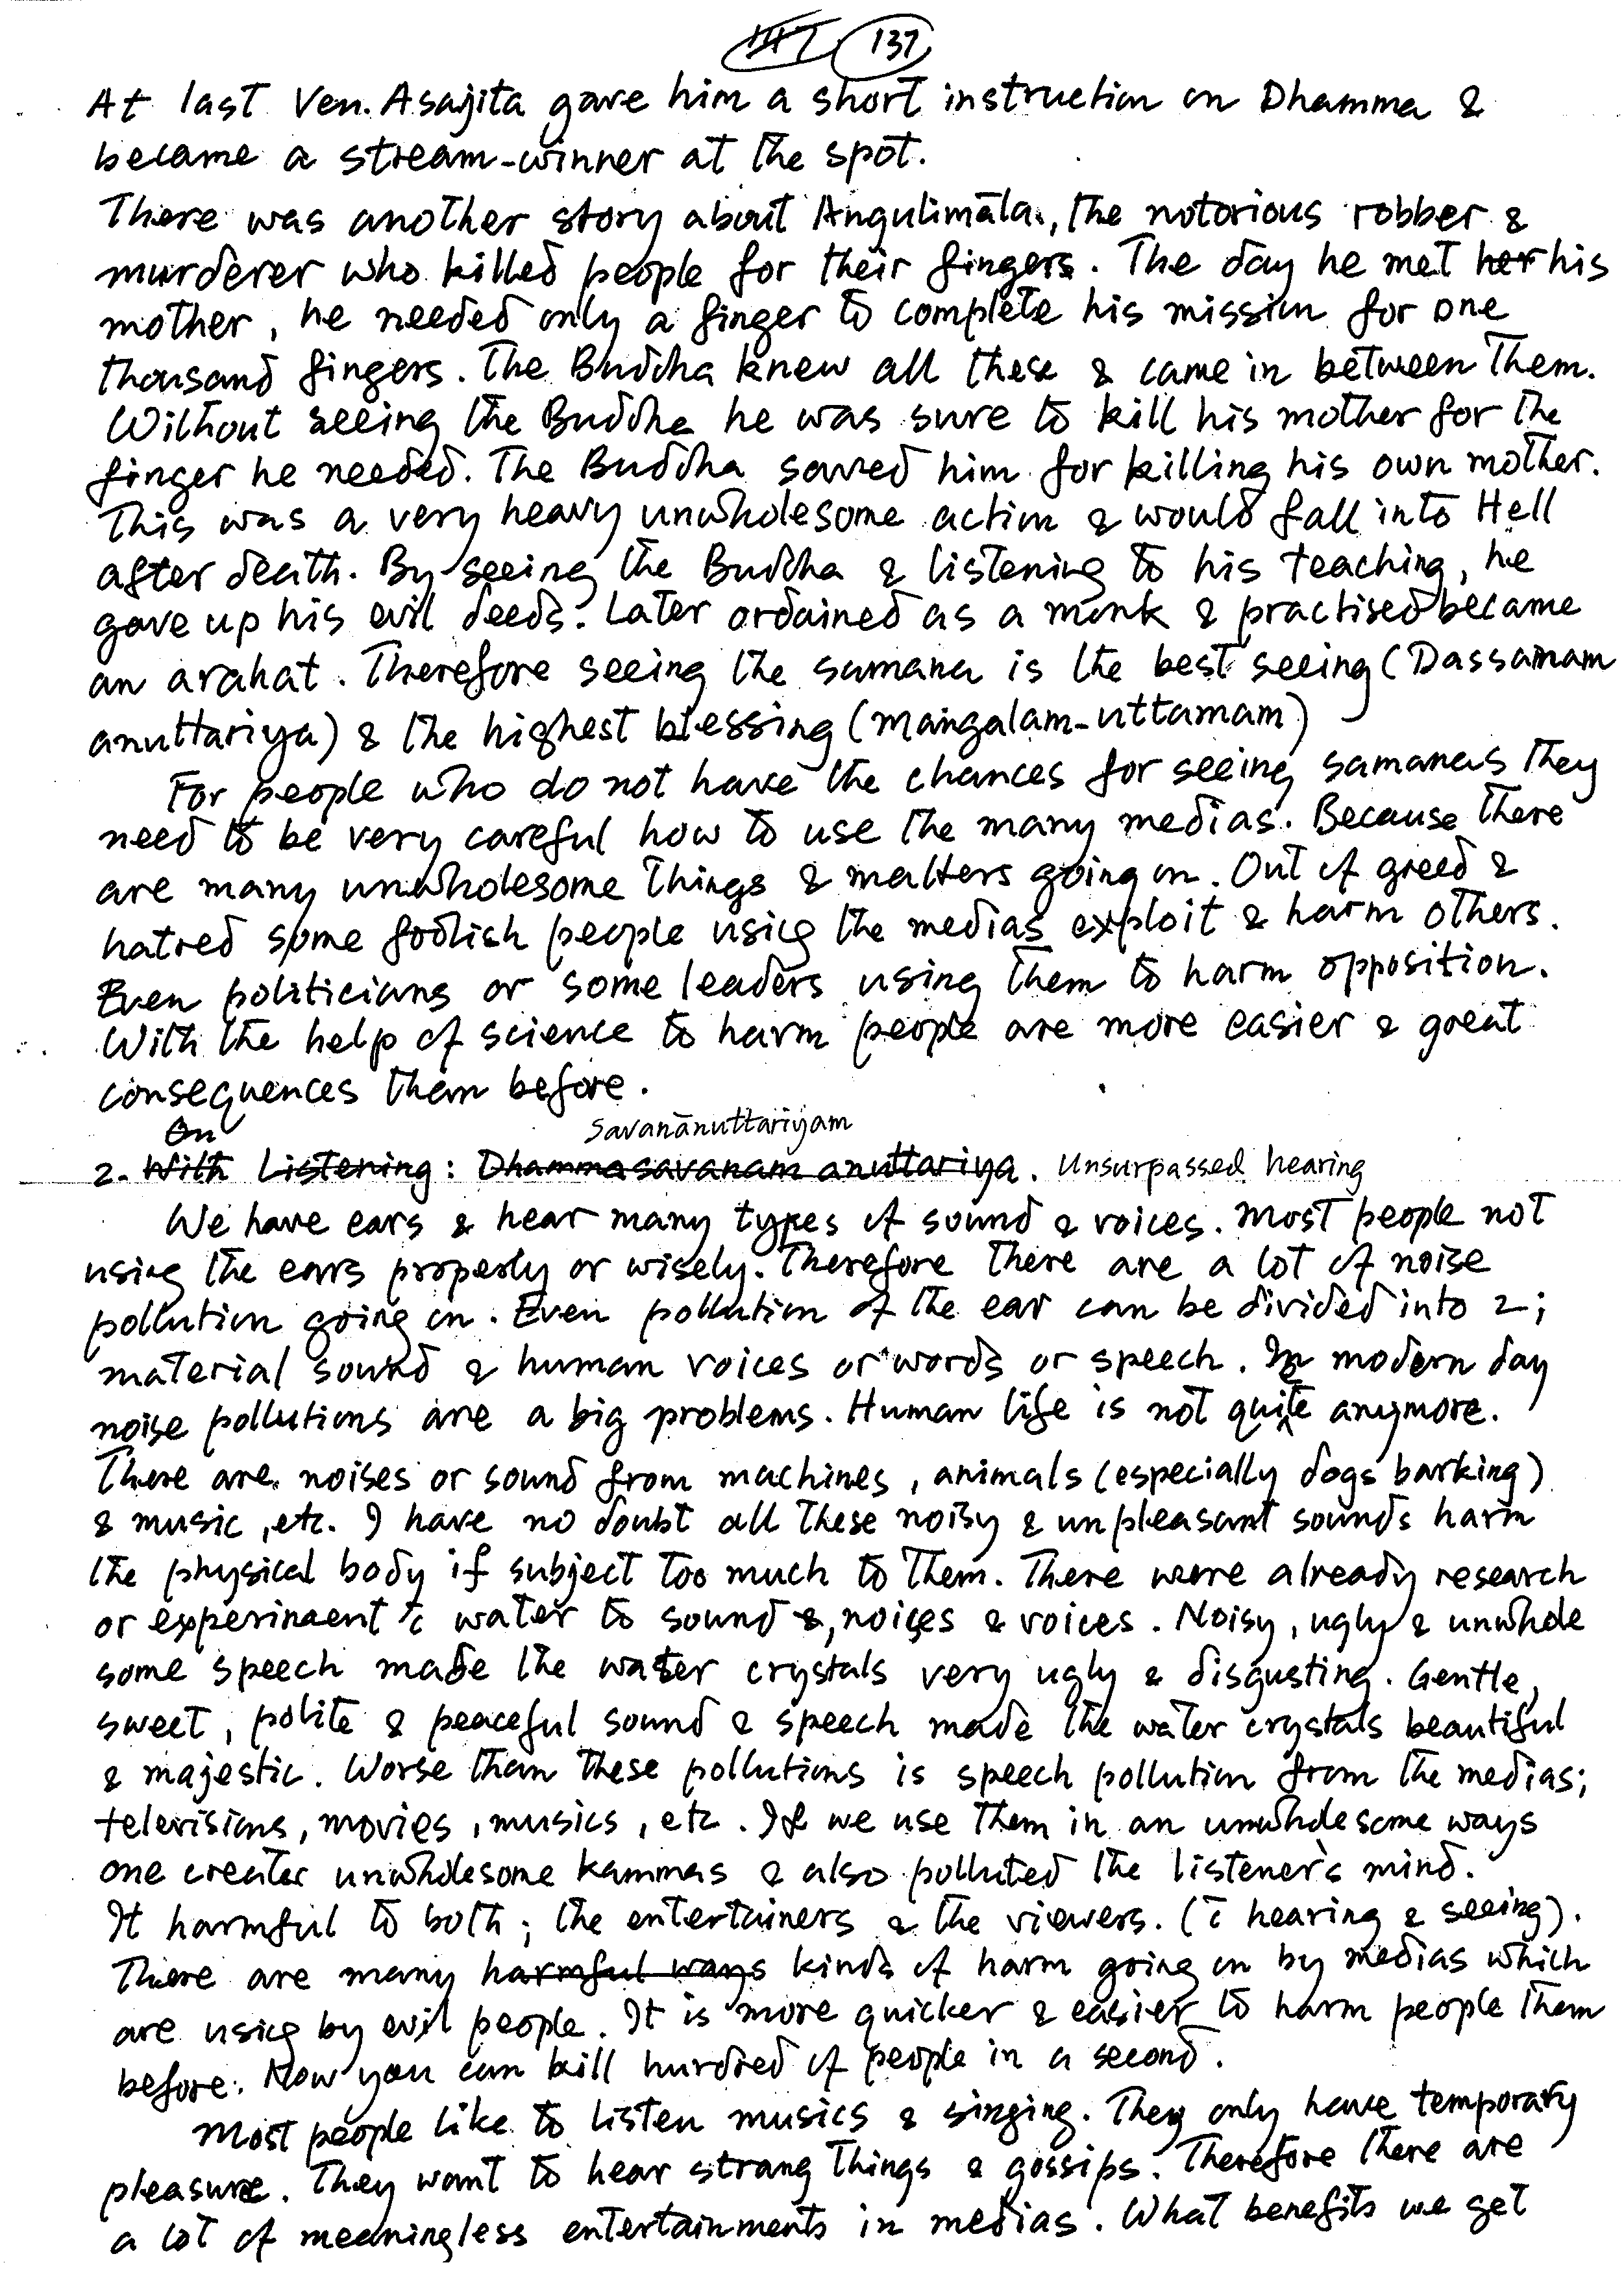 137
At last Ven. Asajita gave him a short instruction on Dhamma &
became a stream-winner at the spot.
There was another story about Angulimāla, the notorious robber &
murderer who killed people for their fingers. The day he met her his
mother, he needed only a finger to complete his mission for one
thousand fingers. The Buddha knew all these & came in between them.
Without seeing the Buddha he was sure to kill his mother for the
finger he needed. The Buddha saved him for killing his own mother.
This was a very heavy unwholesome action & would fall into Hell
after death. By seeing the Buddha & listening to his teaching, he
gave up his evil deeds. Later ordained as a monk & practised became
an arahat. Therefore seeing the samana is the best seeing (Dassanam
anuttariya) & the highest blessing (mangalam-uttamam)
For people who do not have the chances for seeing samanas they
need to be very careful how to use the many medias. Because there
are many unwholesome things & matters going on. Out of greed &
hatred some foolish people using the medias exploit & harm others.
Even politicians or some leaders using them to harm opposition.
With the help of science to harm people are more easier & great
consequences them before.
On Savanānuttariyam
2. With Listening: Dhammasavanam anuttariya. Unsurpassed hearing
We have ears & hear many types of sound & voices. Most people not
using the ears properly or wisely. Therefore there are a lot of noise
pollution going on. Even pollution of the ear can be divided into 2;
material sound & human voices or words or speech. In modern day
noise pollutions are a big problems. Human life is not quite anymore.
There are noises or sound from machines, animals (especially dogs barking)
& music, etc. I have no doubt all these noisy & unpleasant sounds harm
the physical body if subject too much to them. There were already research
or experiment c̄ water to sound &, noises & voices. Noisy, ugly & unwhole
some speech made the water crystals very ugly & disgusting. Gentle,
sweet, polite & peaceful sound & speech made the water crystals beautiful
& majestic. Worse than these pollutions is speech pollution from the medias;
televisions, movies, musics, etc. If we use them in an unwholesome ways
one creates unwholesome kammas & also polluted the listener's mind.
It harmful to both; the entertainers & the viewers. (c̄ hearing & seeing).
There are many harmful ways kinds of harm going on by medias which
are using by evil people. It is more quicker & easier to harm people them
before. Now you can kill hurdred of people in a second.
Most people like to listen musics & singing. They only have temporary
pleasure. They want to hear strang things & gossips. Therefore there are
a lot of meaningless entertainments in medias. What benefits we get